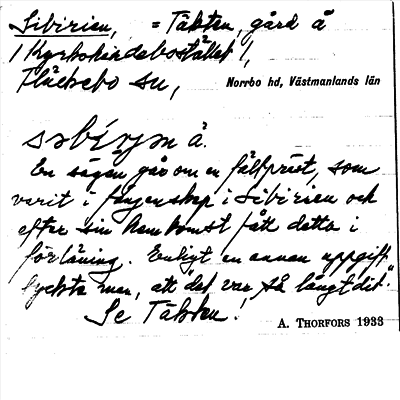 Sibirien, = Täkten, gård å
/Kyrkoherdebostället/,
Fläckebo sn,
Norrbo hd, Västmanlands län
En sägen går om en fältpräst, som
varit i fångenskap i Sibirien och
efter sin hemkomst fått detta i
förläning. Enligt en annan uppgift
tyckte man, att "det var så långt dit."
Se Täkten!
A. THORFORS 1933